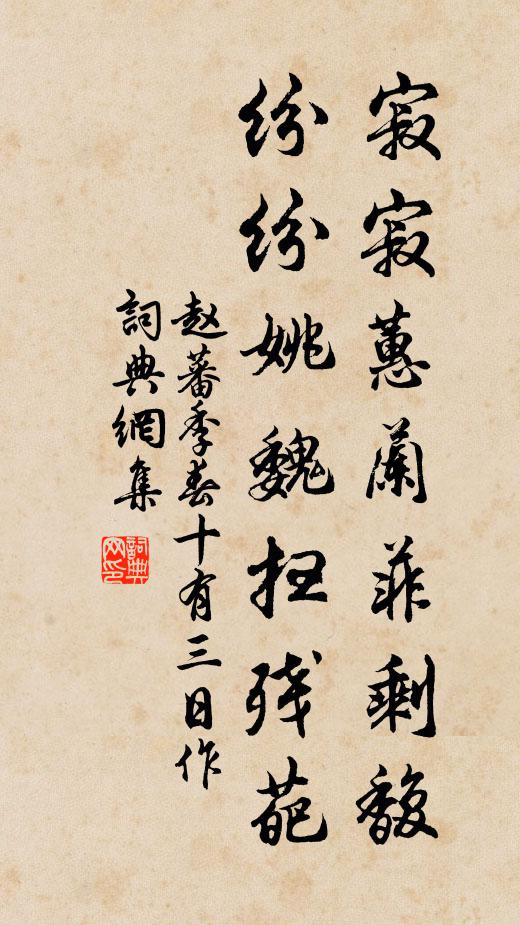 寂寂蕙蘭菲剩馥
纷纷姚魏抯残葩
赵蕃季春十有三日作
詞典網集
詞典网印